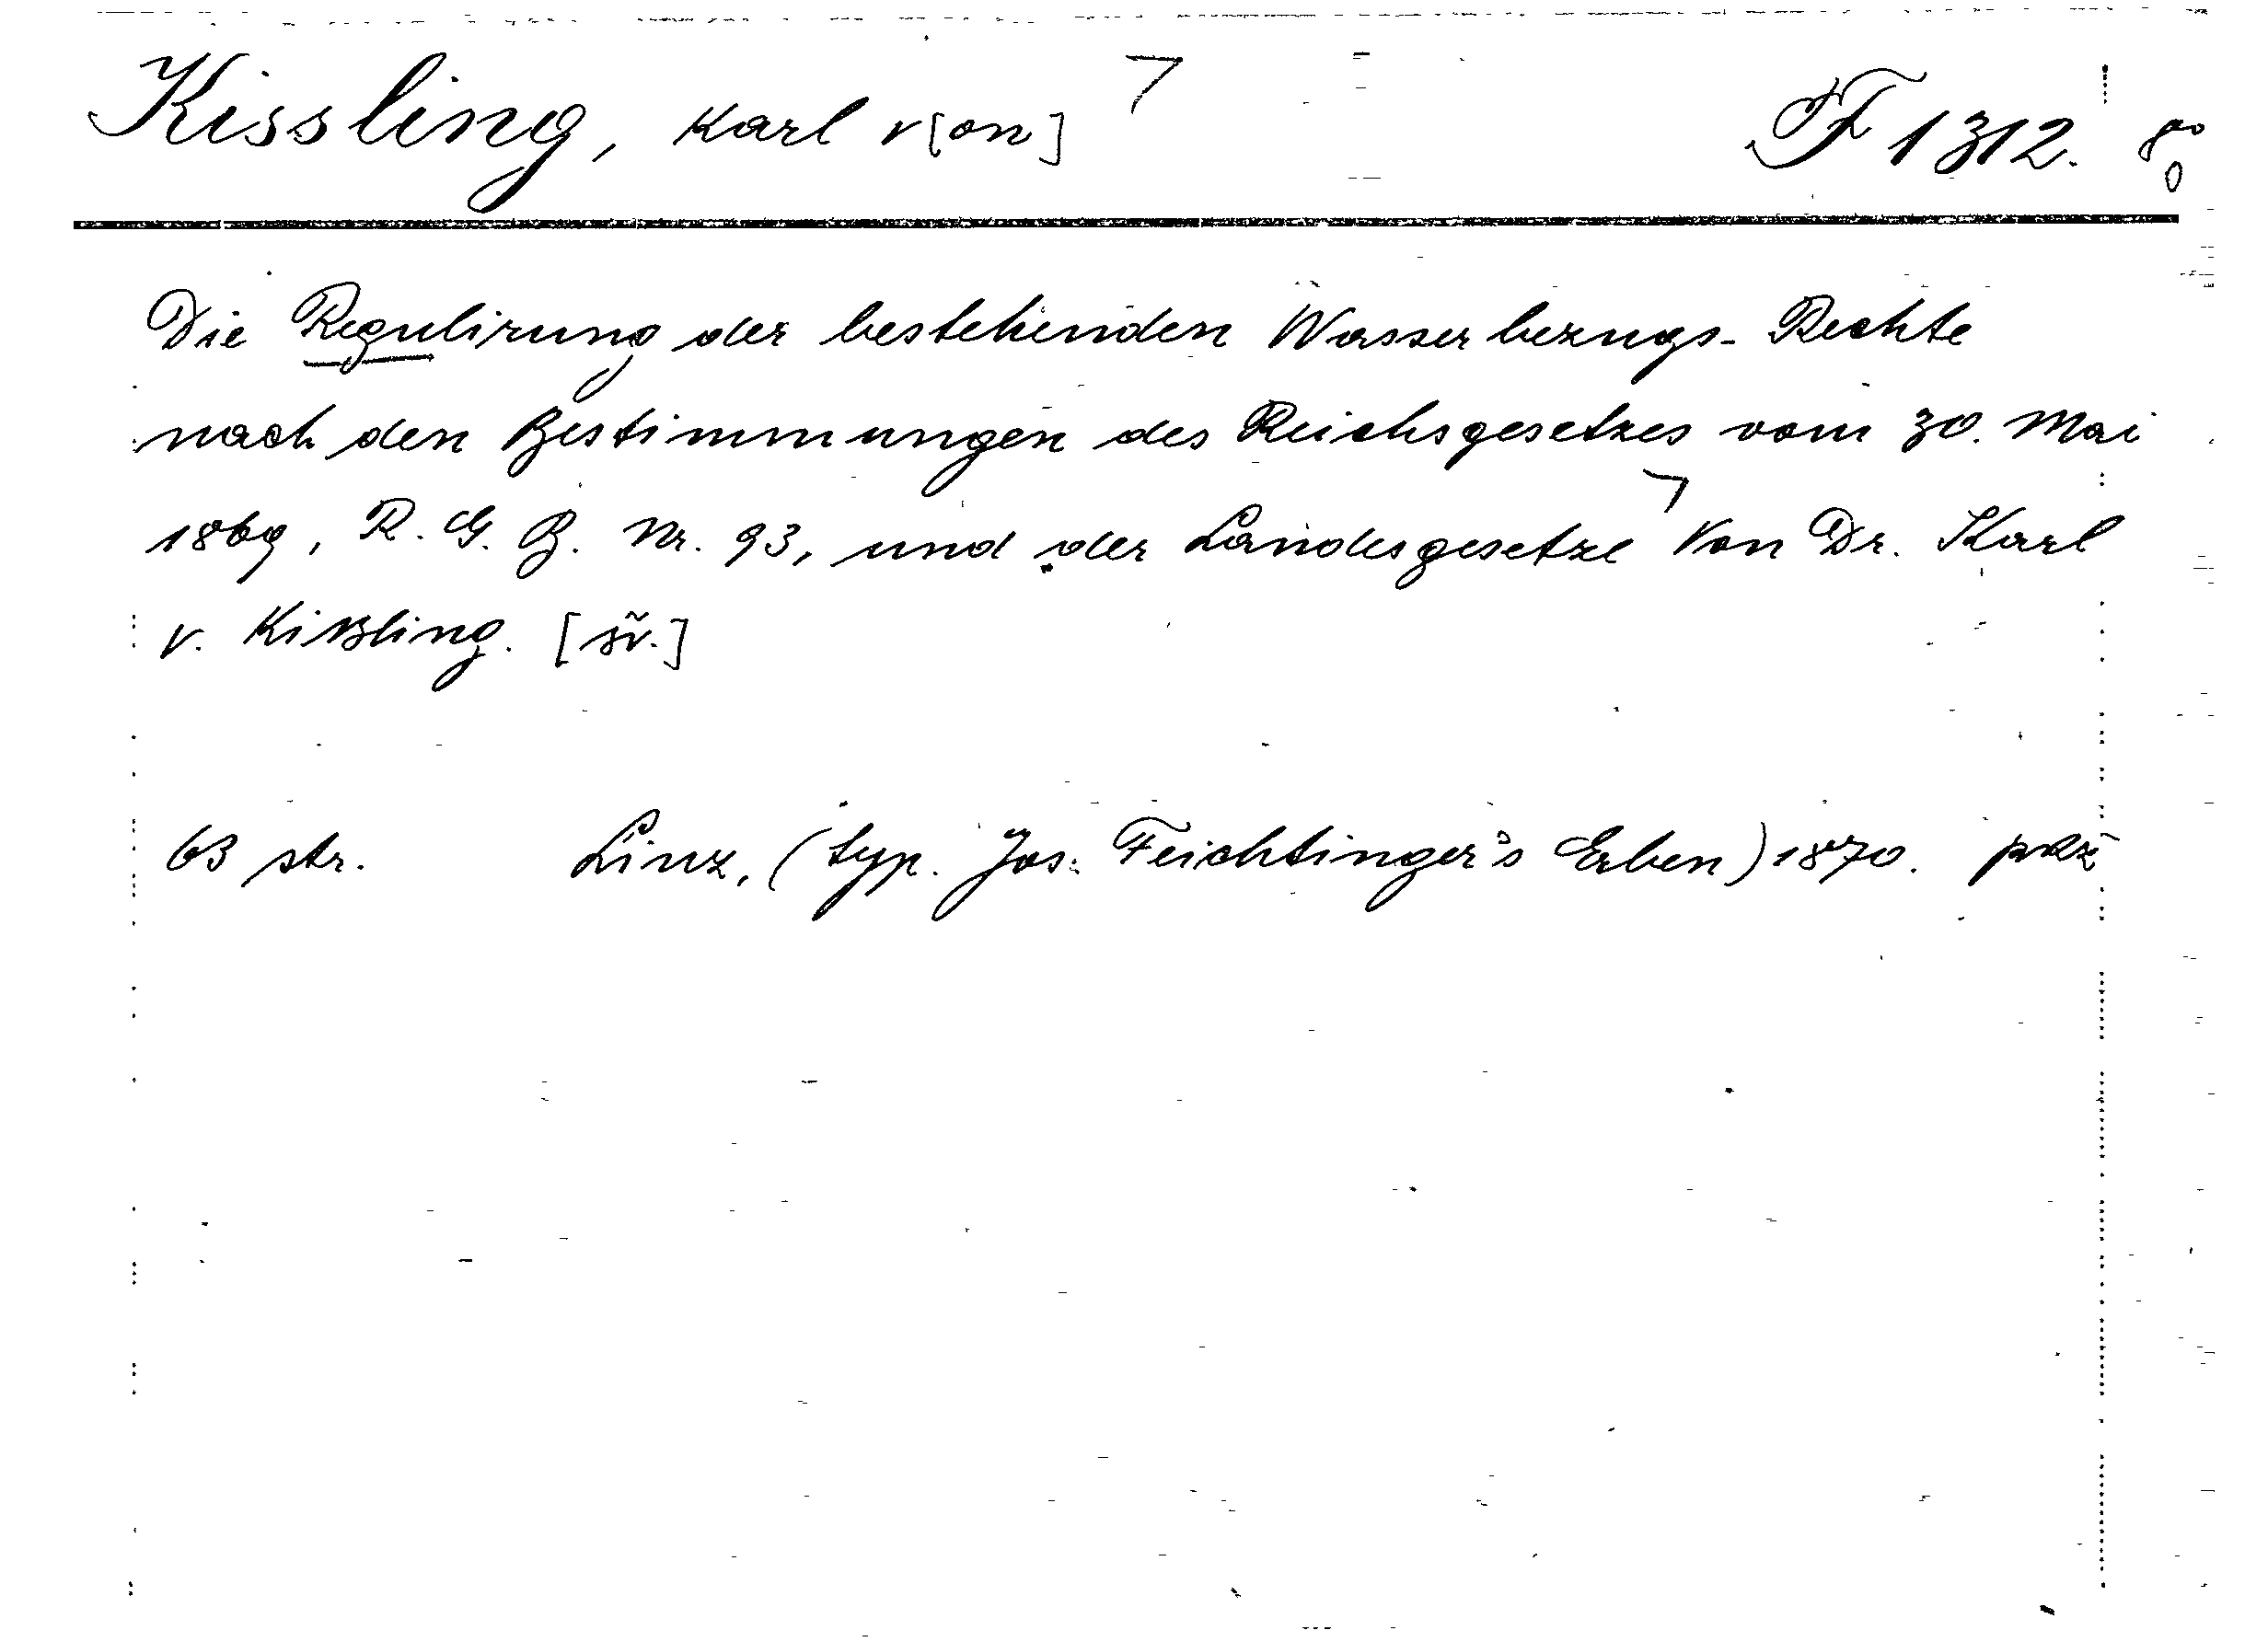 Kissling, Karl v[on] ¬ F 1312. 8°
Die Regulirung der bestehenden Wasserbezugs-Rechte
nach den Bestimmungen des Reichsgesetzes vom 30. Mai
1869, R. G. B. Nr. 93, und der Landesgesetze ¬ Von Dr. Karl
v. Kißling. [sv.]
63 str. Linz, (typ. Jos. Feichtinger's Erben) 1870. prž